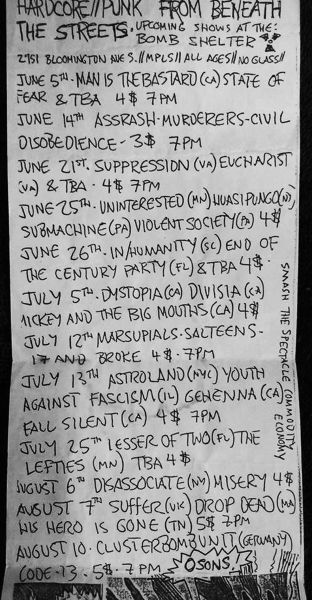 HARDCORE//PUNK FROM BENEATH
THE STREETS. UPCOMING SHOWS AT THE:
BOMB SHELTER
2751 BLOOMINGTON AVE S. //MPLS// ALL AGES// NO GLASS//
JUNE 5TH - MAN IS THE BASTARD (CA) STATE OF
FEAR & TBA 4$ 7PM
JUNE 14TH ASSRASH - MURDERERS - CIVIL
DISOBEDIENCE - 3$ 7PM
JUNE 21ST. SUPPRESSION (VA) EUCHARIST
(VA) & TBA - 4$ 7PM
JUNE 25TH. UNINTERESTED (MN) HUASIPUNGO (NY),
SUBMACHINE (PA) VIOLENT SOCIETY (PA) 4$
JUNE 26TH. IN/HUMANITY (SC) END OF
THE CENTURY PARTY (FL) & TBA 4$.
JULY 5TH. DYSTOPIA (CA) DIVISIA (CA)
MICKEY AND THE BIG MOUTHS (CA) 4$
JULY 12TH MARSUPIALS - SALTEENS -
17 AND BROKE 4$ - 7PM
JULY 13TH ASTROLAND (NYC) YOUTH
AGAINST FASCISM (IL) GEHENNA (CA)
FALL SILENT (CA) 4$ 7PM
JULY 25TH LESSER OF TWO (FL) THE
LEFTIES (MN) TBA 4$
AUGUST 6TH DISASSOCIATE (NY) MISERY 4$
AUGUST 7TH SUFFER (UK) DROP DEAD (MA)
HIS HERO IS GONE (TN) 5$ 7PM
AUGUST 10 - CLUSTERBOMBUNIT (GERMANY)
CODE-13 - 5$ - 7PM
SMASH THE SPECTACLE COMMODITY
ECONOMY